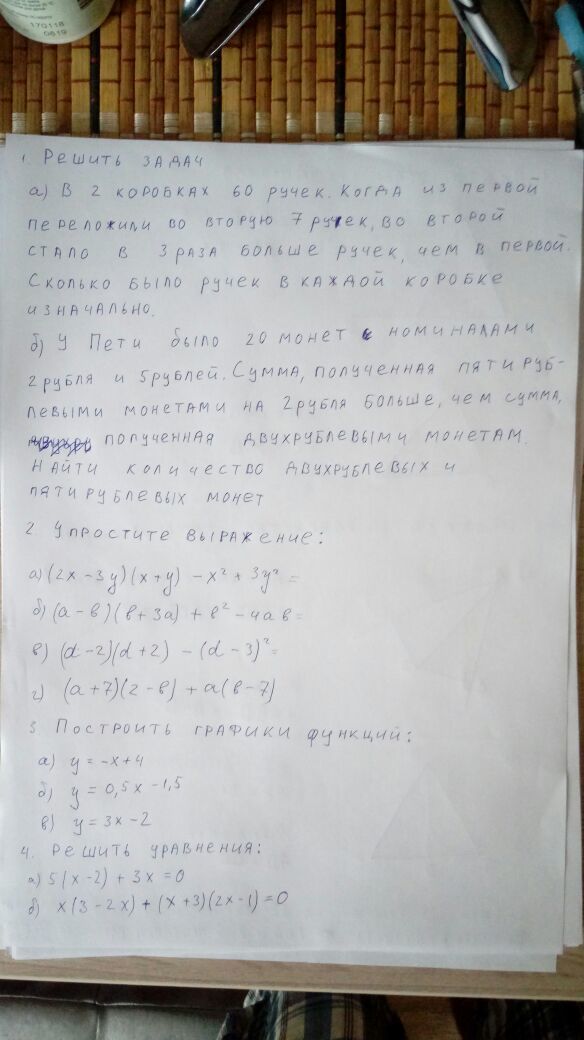 170118
0619
1. Решить задач
а) В 2 коробках 60 ручек. Когда из первой
переложили во вторую 7 ручек, во второй
стало в 3 раза больше ручек, чем в первой.
Сколько было ручек в каждой коробке
изначально.
б) У Пети было 20 монет с номиналами
2 рубля и 5 рублей. Сумма, полученная пятируб-
левыми монетами на 2 рубля больше, чем сумма,
полученная двухрублевыми монетам.
Найти количество двухрублевых и
пятирублевых монет
2. Упростите выражение:
а) (2x - 3y)(x + y) - x² + 3y² =
б) (a - b)(b + 3a) + b² - 4ab =
в) (d - 2)(d + 2) - (d - 3)² =
г) (a + 7)(2 - b) + a(b - 7)
3. Построить графики функций:
а) y = -x + 4
б) y = 0,5x - 1,5
в) y = 3x - 2
4. Решить уравнения:
а) 5(x - 2) + 3x = 0
б) x(3 - 2x) + (x + 3)(2x - 1) = 0